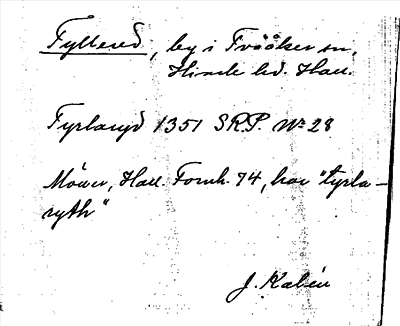 Fyllered, by i Tvååker sn,
Himle hd. Hall.
Fyrlaryd 1351 SRP. No 28
Möller, Hall. Fornh. 74, har "tyrla-
ryth"
J. Kalén